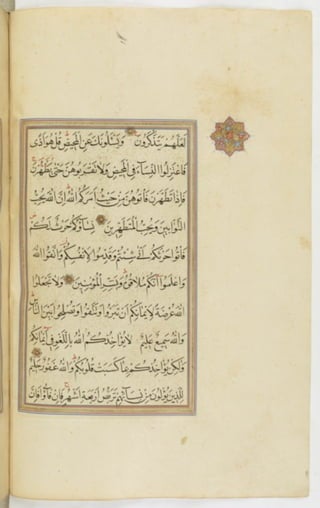 لَعَلَّهُمْ يَتَذَكَّرُونَ وَيَسْأَلُونَكَ عَنِ الْمَحِيضِ قُلْ هُوَ أَذًى
فَاعْتَزِلُوا النِّسَاءَ فِي الْمَحِيضِ وَلَا تَقْرَبُوهُنَّ حَتَّى يَطْهُرْنَ
فَإِذَا تَطَهَّرْنَ فَأْتُوهُنَّ مِنْ حَيْثُ أَمَرَكُمُ اللَّهُ إِنَّ اللَّهَ يُحِبُّ
التَّوَّابِينَ وَيُحِبُّ الْمُتَطَهِّرِينَ نِسَاؤُكُمْ حَرْثٌ لَكُمْ
فَأْتُوا حَرْثَكُمْ أَنَّى شِئْتُمْ وَقَدِّمُوا لِأَنْفُسِكُمْ وَاتَّقُوا اللَّهَ
وَاعْلَمُوا أَنَّكُمْ مُلَاقُوهُ وَبَشِّرِ الْمُؤْمِنِينَ وَلَا تَجْعَلُوا
اللَّهَ عُرْضَةً لِأَيْمَانِكُمْ أَنْ تَبَرُّوا وَتَتَّقُوا وَتُصْلِحُوا بَيْنَ النَّاسِ
وَاللَّهُ سَمِيعٌ عَلِيمٌ لَا يُؤَاخِذُكُمُ اللَّهُ بِاللَّغْوِ فِي أَيْمَانِكُمْ
وَلَكِنْ يُؤَاخِذُكُمْ بِمَا كَسَبَتْ قُلُوبُكُمْ وَاللَّهُ غَفُورٌ حَلِيمٌ
لِلَّذِينَ يُؤْلُونَ مِنْ نِسَائِهِمْ تَرَبُّصُ أَرْبَعَةِ أَشْهُرٍ فَإِنْ فَاءُوا فَإِنَّ